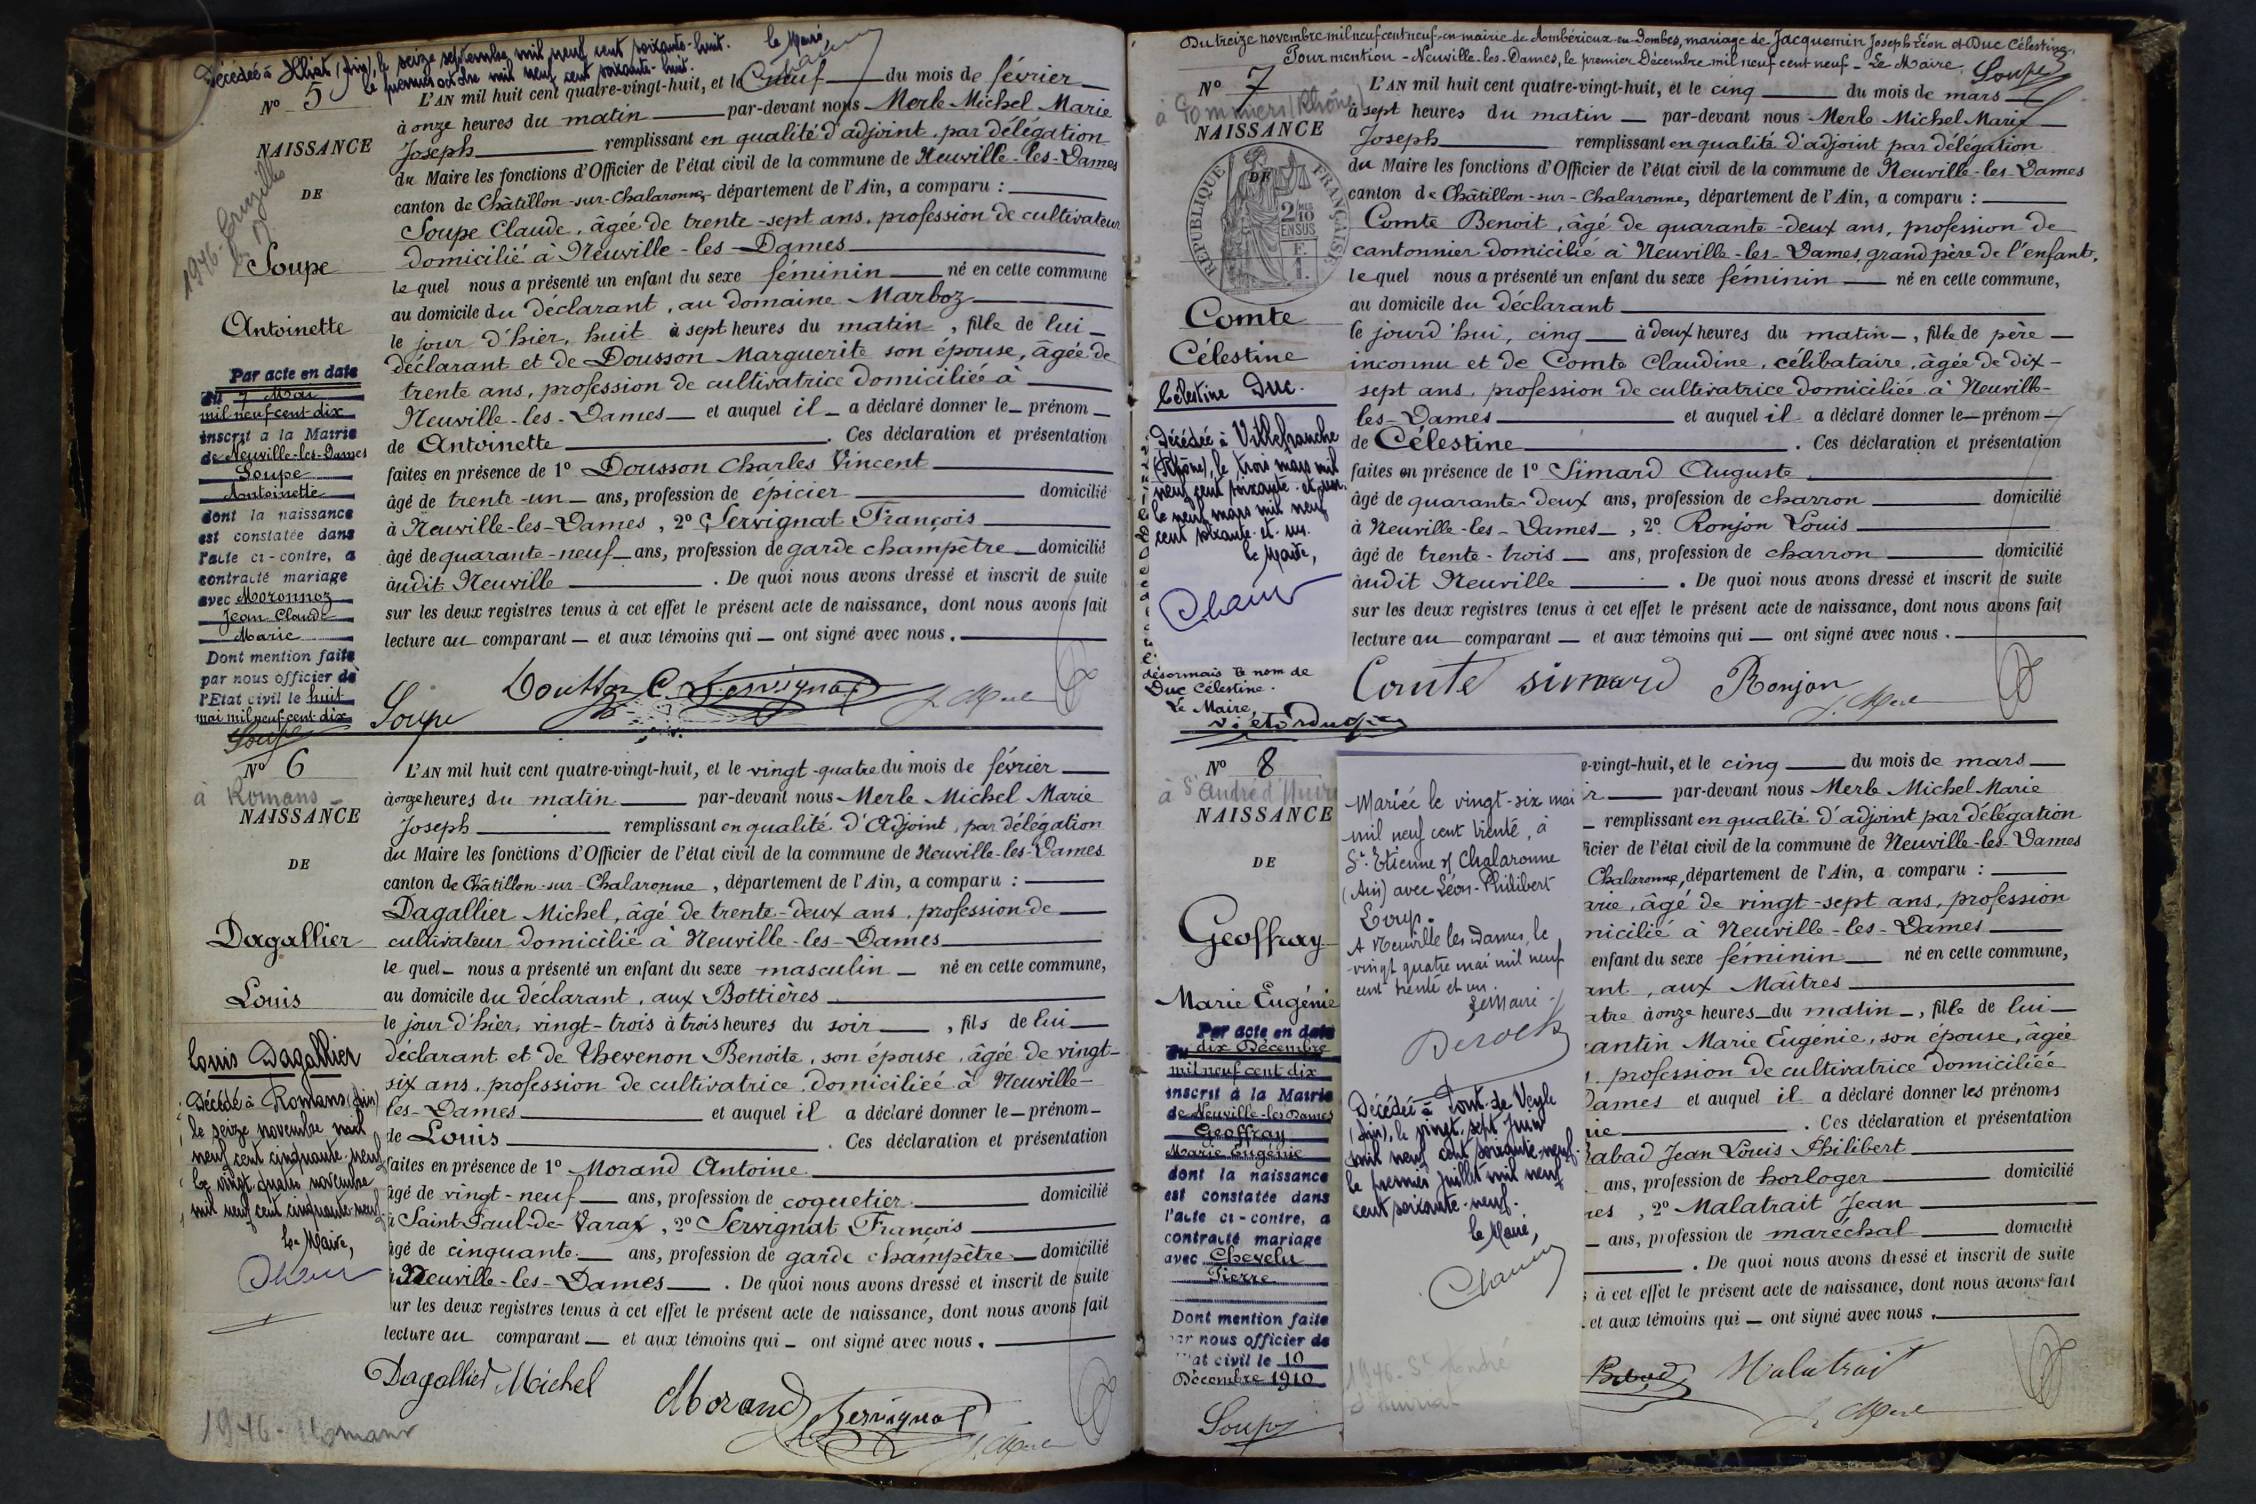 Décédée à Illiat (Ain), le seize septembre mil neuf cent soixante-huit.
le premier octobre mil neuf cent soixante-huit. le Maire,
Nº 5
NAISSANCE
DE
Soupe
Antoinette
1946
Par acte en date
du 7 Mai
mil neuf cent dix
inscrit à la Mairie
de Neuville-les-Dames
Soupe
Antoinette
dont la naissance
est constatée dans
l'acte ci-contre, a
contracté mariage
avec Moronnoz
Jean Claude
Marie
Dont mention faite
par nous officier de
l'Etat civil le huit
mai mil neuf cent dix
Soupe
L'AN mil huit cent quatre-vingt-huit, et le neuf du mois de février
à onze heures du matin par-devant nous Merle Michel Marie
Joseph remplissant en qualité d'adjoint, par délégation
du Maire les fonctions d'Officier de l'état civil de la commune de Neuville-les-Dames
canton de Châtillon-sur-Chalaronne, département de l'Ain, a comparu :
Soupe Claude, âgée de trente-sept ans, profession de cultivateur
domicilié à Neuville-les-Dames
le quel nous a présenté un enfant du sexe féminin né en cette commune
au domicile du déclarant, au domaine Marboz
le jour d'hier, huit à sept heures du matin, fille de lui
déclarant et de Dousson Marguerite son épouse, âgée de
trente ans, profession de cultivatrice domiciliée à
Neuville-les-Dames et auquel il a déclaré donner le prénom
de Antoinette. Ces déclaration et présentation
faites en présence de 1º Dousson Charles Vincent
âgé de trente-un ans, profession de épicier domicilié
à Neuville-les-Dames, 2º Servignat François
âgé de quarante-neuf ans, profession de garde champêtre domicilié
àudit Neuville. De quoi nous avons dressé et inscrit de suite
sur les deux registres tenus à cet effet le présent acte de naissance, dont nous avons fait
lecture au comparant et aux témoins qui ont signé avec nous.
Soupe Dousson C. Servignat J. Merle
Nº 6
à Romans
NAISSANCE
DE
Dagallier
Louis
Louis Dagallier
Décédé à Romans (Ain)
le seize novembre mil
neuf cent cinquante-neuf
le vingt-quatre novembre
mil neuf cent cinquante-neuf
le Maire,
1946 - Romans
L'AN mil huit cent quatre-vingt-huit, et le vingt-quatre du mois de février
à onze heures du matin par-devant nous Merle Michel Marie
Joseph remplissant en qualité d'Adjoint, par délégation
du Maire les fonctions d'Officier de l'état civil de la commune de Neuville-les-Dames
canton de Châtillon-sur-Chalaronne, département de l'Ain, a comparu :
Dagallier Michel, âgé de trente-deux ans, profession de
cultivateur domicilié à Neuville-les-Dames
le quel nous a présenté un enfant du sexe masculin né en cette commune,
au domicile du déclarant, aux Bottières
le jour d'hier, vingt-trois à trois heures du soir, fils de lui
déclarant et de Thevenon Benoite, son épouse, âgée de vingt-
six ans, profession de cultivatrice domiciliée à Neuville-
les-Dames et auquel il a déclaré donner le prénom
de Louis. Ces déclaration et présentation
faites en présence de 1º Morand Antoine
âgé de vingt-neuf ans, profession de coquetier domicilié
à Saint-Paul-de-Varax, 2º Servignat François
âgé de cinquante ans, profession de garde champêtre domicilié
à Neuville-les-Dames. De quoi nous avons dressé et inscrit de suite
sur les deux registres tenus à cet effet le présent acte de naissance, dont nous avons fait
lecture au comparant et aux témoins qui ont signé avec nous.
Dagallier Michel Morand Servignat J. Merle
Du treize novembre mil neuf cent neuf en mairie de Ambérieux-en-Dombes, mariage de Jacquemin Joseph Léon et Duc Célestine.
Pour mention - Neuville-les-Dames, le premier Décembre mil neuf cent neuf - Le Maire, Soupe
Nº 7
à Pommiers (Rhône)
NAISSANCE
DE
RÉPUBLIQUE FRANÇAISE
2/10 MES
EN SUS
Comte
Célestine
Célestine Duc.
Décédée à Villefranche
(Rhône), le trois mars mil
neuf cent soixante-et-un.
le neuf mars mil neuf
cent soixante-et-un.
le Maire,
désormais le nom de
Duc Célestine.
Le Maire,
L'AN mil huit cent quatre-vingt-huit, et le cinq du mois de mars
à sept heures du matin par-devant nous Merle Michel Marie
Joseph remplissant en qualité d'adjoint par délégation
du Maire les fonctions d'Officier de l'état civil de la commune de Neuville-les-Dames
canton de Châtillon-sur-Chalaronne, département de l'Ain, a comparu :
Comte Benoit, âgé de quarante-deux ans, profession de
cantonnier domicilié à Neuville-les-Dames, grand père de l'enfant,
le quel nous a présenté un enfant du sexe féminin né en cette commune,
au domicile du déclarant
le jourd'hui, cinq à deux heures du matin, fille de père
inconnu et de Comte Claudine, célibataire, âgée de dix-
sept ans, profession de cultivatrice domiciliée à Neuville-
les-Dames et auquel il a déclaré donner le prénom
de Célestine. Ces déclaration et présentation
faites en présence de 1º Simard Auguste
âgé de quarante-deux ans, profession de charron domicilié
à Neuville-les-Dames, 2º Ronjon Louis
âgé de trente-trois ans, profession de charron domicilié
àudit Neuville. De quoi nous avons dressé et inscrit de suite
sur les deux registres tenus à cet effet le présent acte de naissance, dont nous avons fait
lecture au comparant et aux témoins qui ont signé avec nous.
Comte simard Ronjon J. Merle
Nº 8
à St André d'Huiri
NAISSANCE
DE
Geoffray
Marie Eugénie
Par acte en date
du dix Décembre
mil neuf cent dix
inscrit à la Mairie
de Neuville-les-Dames
Geoffray
Marie Eugénie
dont la naissance
est constatée dans
l'acte ci-contre, a
contracté mariage
avec Chevelu
Pierre
Dont mention faite
par nous officier de
l'Etat civil le 10
Décembre 1910
Soupe
Mariée le vingt-six mai
mil neuf cent trente, à
St-Etienne s/ Chalaronne
(Ain) avec Léon-Philibert
A Neuville les Dames, le
vingt quatre mai mil neuf
cent trente et un.
Le Maire
Décédée à Pont-de-Veyle
(Ain), le vingt-sept juin
mil neuf cent soixante-neuf.
le premier juillet mil neuf
cent soixante-neuf.
le Maire,
1946 - St André
d'Huiriat
e-vingt-huit, et le cinq du mois de mars
par-devant nous Merle Michel Marie
remplissant en qualité d'adjoint par délégation
ficier de l'état civil de la commune de Neuville-les-Dames
Chalaronne, département de l'Ain, a comparu :
arie, âgé de vingt-sept ans, profession
micilié à Neuville-les-Dames
enfant du sexe féminin né en cette commune,
ant, aux Maîtres
atre à onze heures du matin, fille de lui
antin Marie Eugénie, son épouse, âgée
profession de cultivatrice domiciliée
Dames et auquel il a déclaré donner les prénoms
nie. Ces déclaration et présentation
abad Jean Louis Philibert
ans, profession de horloger domicilié
mes, 2º Malatrait Jean
ans, profession de maréchal domicilié
. De quoi nous avons dressé et inscrit de suite
s à cet effet le présent acte de naissance, dont nous avons fait
et aux témoins qui ont signé avec nous.
Malatrait
J. Merle